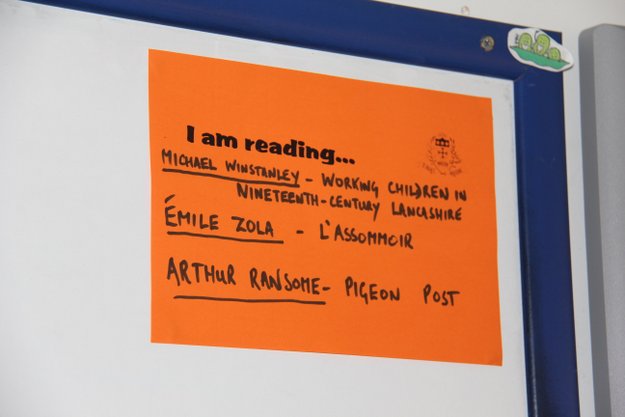 I am reading...
MICHAEL WINSTANLEY - WORKING CHILDREN IN
NINETEENTH-CENTURY LANCASHIRE
ÉMILE ZOLA - L'ASSOMMOIR
ARTHUR RANSOME - PIGEON POST